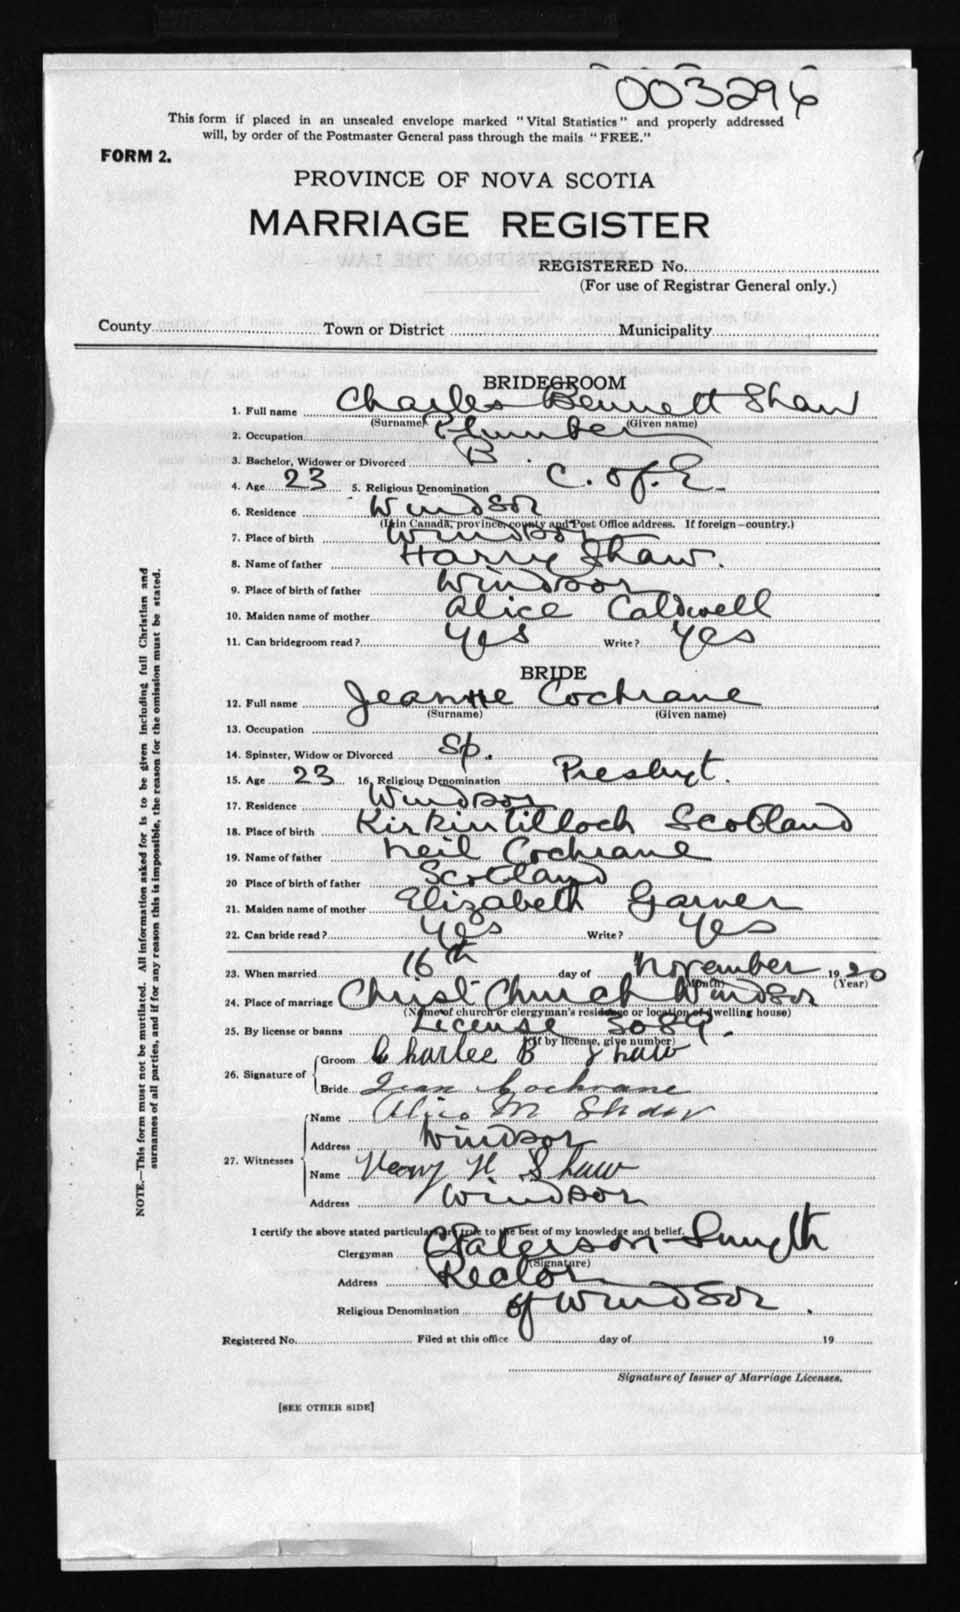 003296
This form if placed in an unsealed envelope marked "Vital Statistics" and properly addressed
will, by order of the Postmaster General pass through the mails "FREE."
FORM 2.
PROVINCE OF NOVA SCOTIA
MARRIAGE REGISTER
EXTRACTS FROM THE LAW
REGISTERED No.
(For use of Registrar General only.)
County Town or District Municipality
BRIDEGROOM
1. Full name Charles Bennett Shaw
(Surname) (Given name)
2. Occupation Plumber
3. Bachelor, Widower or Divorced B
4. Age 23 5. Religious Denomination C. of E.
6. Residence Windsor
(If in Canada, province, county and Post Office address. If foreign—country.)
7. Place of birth Windsor
8. Name of father Harry Shaw.
9. Place of birth of father Windsor
10. Maiden name of mother Alice Caldwell
11. Can bridegroom read? Yes Write? Yes
BRIDE
12. Full name Jeanne Cochrane
(Surname) (Given name)
13. Occupation
14. Spinster, Widow or Divorced Sp.
15. Age 23 16. Religious Denomination Presbyt.
17. Residence Windsor
18. Place of birth Kirkintilloch Scotland
19. Name of father Neil Cochrane
20 Place of birth of father Scotland
21. Maiden name of mother Elizabeth Garner
22. Can bride read? Yes Write? Yes
23. When married 16th day of November 1920
(Month) (Year)
24. Place of marriage Christ Church Windsor
(Name of church or clergyman's residence or location of dwelling house)
25. By license or banns License 3089.
(If by license, give number)
26. Signature of Groom Charlee B Shaw
Bride Jean Cochrane
27. Witnesses Name Alice M Shaw
Address Windsor
Name Henry H Shaw
Address Windsor
I certify the above stated particulars are true to the best of my knowledge and belief.
Clergyman C Paterson-Smyth
(Signature)
Address Rector
Religious Denomination of Windsor.
Registered No. Filed at this office day of 19
Signature of Issuer of Marriage Licenses.
[SEE OTHER SIDE]
NOTE.—This form must not be mutilated. All information asked for is to be given including full Christian and
surnames of all parties, and if for any reason this is impossible, the reason for the omission must be stated.